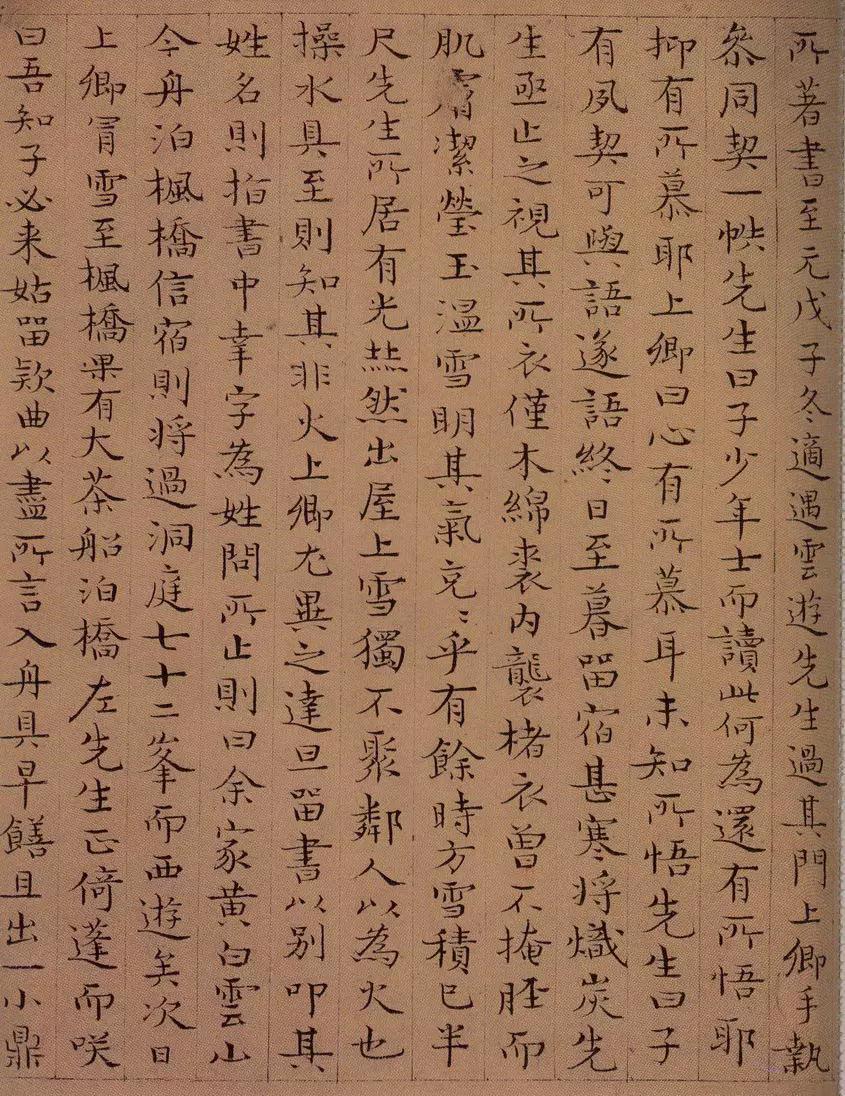 所著書至元戊子冬適遇雲遊先生過其門上卿手執
叅同契一帙先生曰子少年士而讀此何為還有所悟耶
抑有所慕耶上卿曰心有所慕耳未知所悟先生曰子
有夙契可與語遂語終日至暮留宿甚寒将熾炭先
生亟止之視其所衣僅木綿裘内襲楮衣曾不掩胫而
肌膚潔瑩玉温雪明其氣亮〻乎有餘時方雪積已半
尺先生所居有光燕然出屋上雪獨不聚鄰人以為火也
操水具至則知其非火上卿尤異之達旦留書以别叩其
姓名則指書中幸字為姓問所止則曰余家黄白雲山
今舟泊楓橋信宿則将過洞庭七十二峯而西遊矣次日
上卿冐雪至楓橋果有大茶船泊橋左先生正倚蓬而咲
曰吾知子必来姑留欵曲以盡所言入舟具早饍且出一小鼎